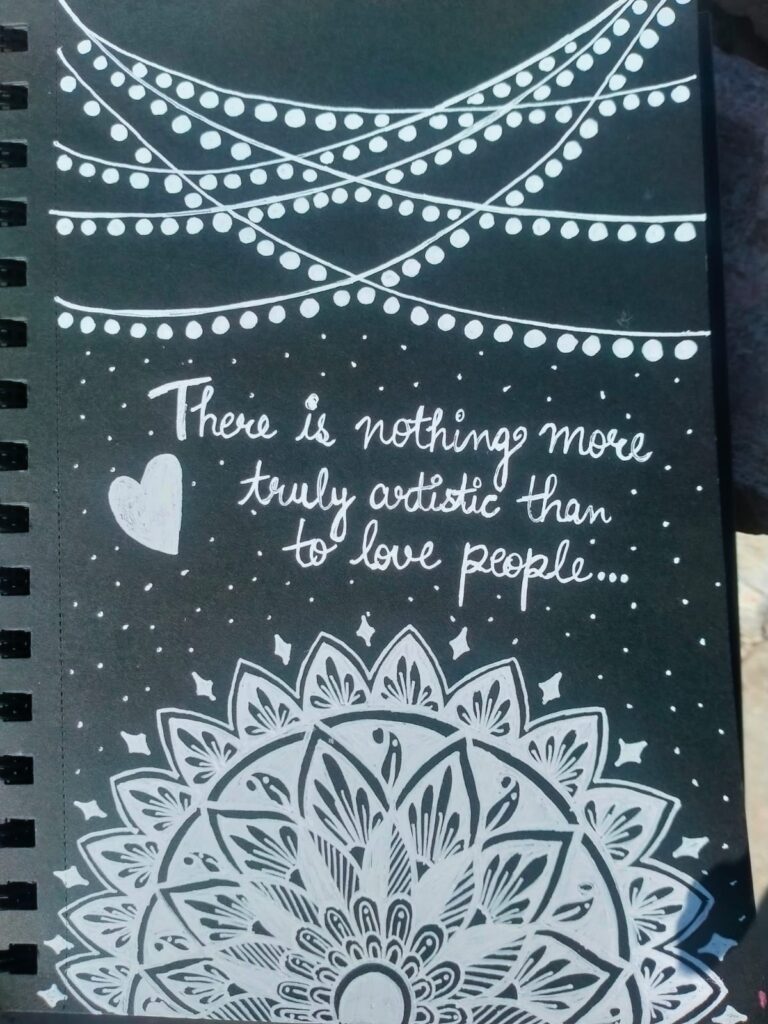 There is nothing more
truly artistic than
to love people...